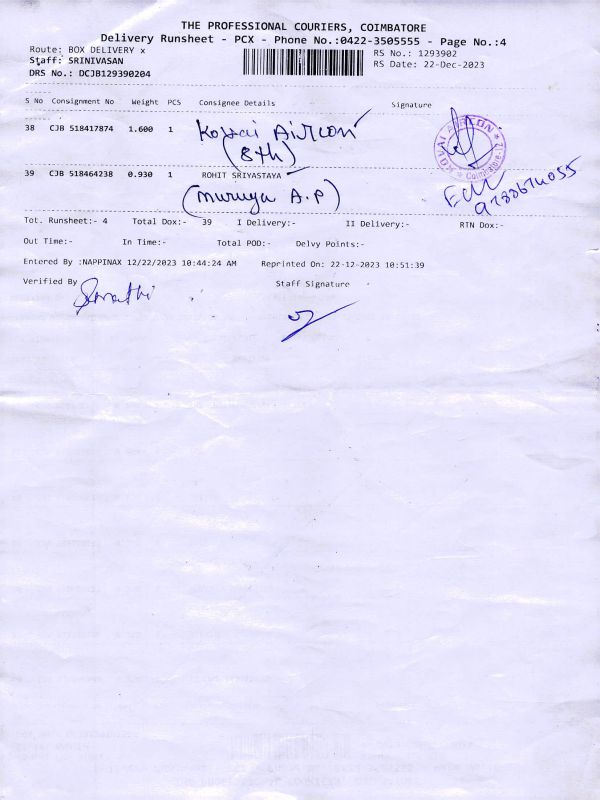 THE PROFESSIONAL COURIERS, COIMBATORE
Delivery Runsheet - PCX - Phone No.:0422-3505555 - Page No.:4
Route: BOX DELIVERY x
RS No.: 1293902
Staff: SRINIVASAN
RS Date: 22-Dec-2023
DRS No.: DCJB129390204
S No Consignment No Weight PCS Consignee Details Signature
38 CJB 518417874 1.600 1 Kovai Aircon
(8th)
KOVAI AIRCON * Coimbatore-12 *
39 CJB 518464238 0.930 1 ROHIT SRIVASTAYA
(Muruga A.P)
Tot. Runsheet:- 4 Total Dox:- 39 I Delivery:- II Delivery:- RTN Dox:-
Out Time:- In Time:- Total POD:- Delvy Points:-
Entered By :NAPPINAX 12/22/2023 10:44:24 AM Reprinted On: 22-12-2023 10:51:39
Verified By Staff Signature